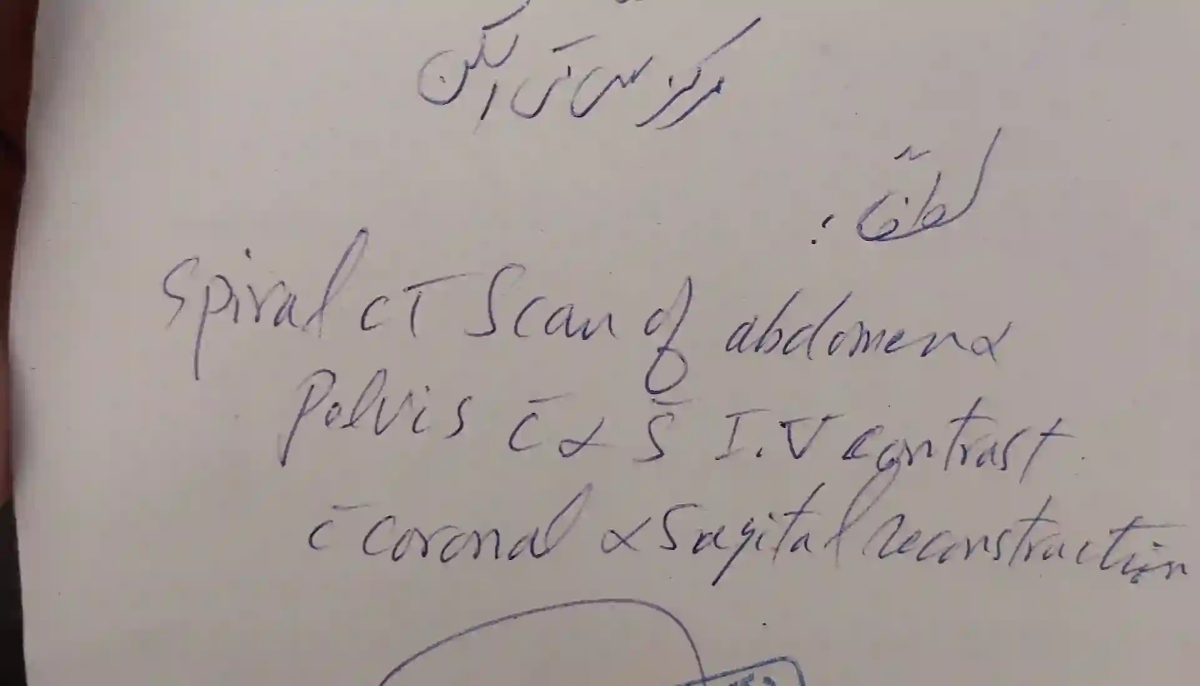 مرکز سی تی اسکن
لطفاً:
Spiral CT Scan of abdomen &
Pelvis c̄ & s̄ I.V contrast
c̄ coronal & Sagital reconstruction